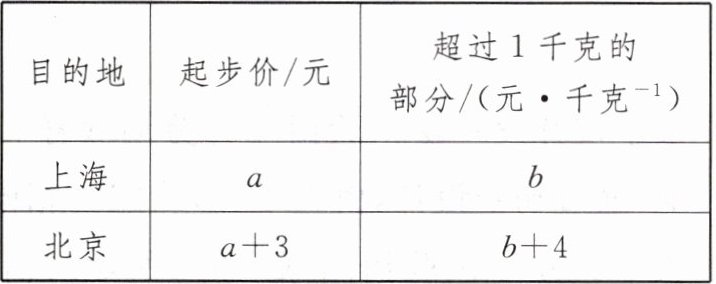 目的地 起步价/元 超过1千克的
部分/(元·千克⁻¹)
上海 a b
北京 a+3 b+4